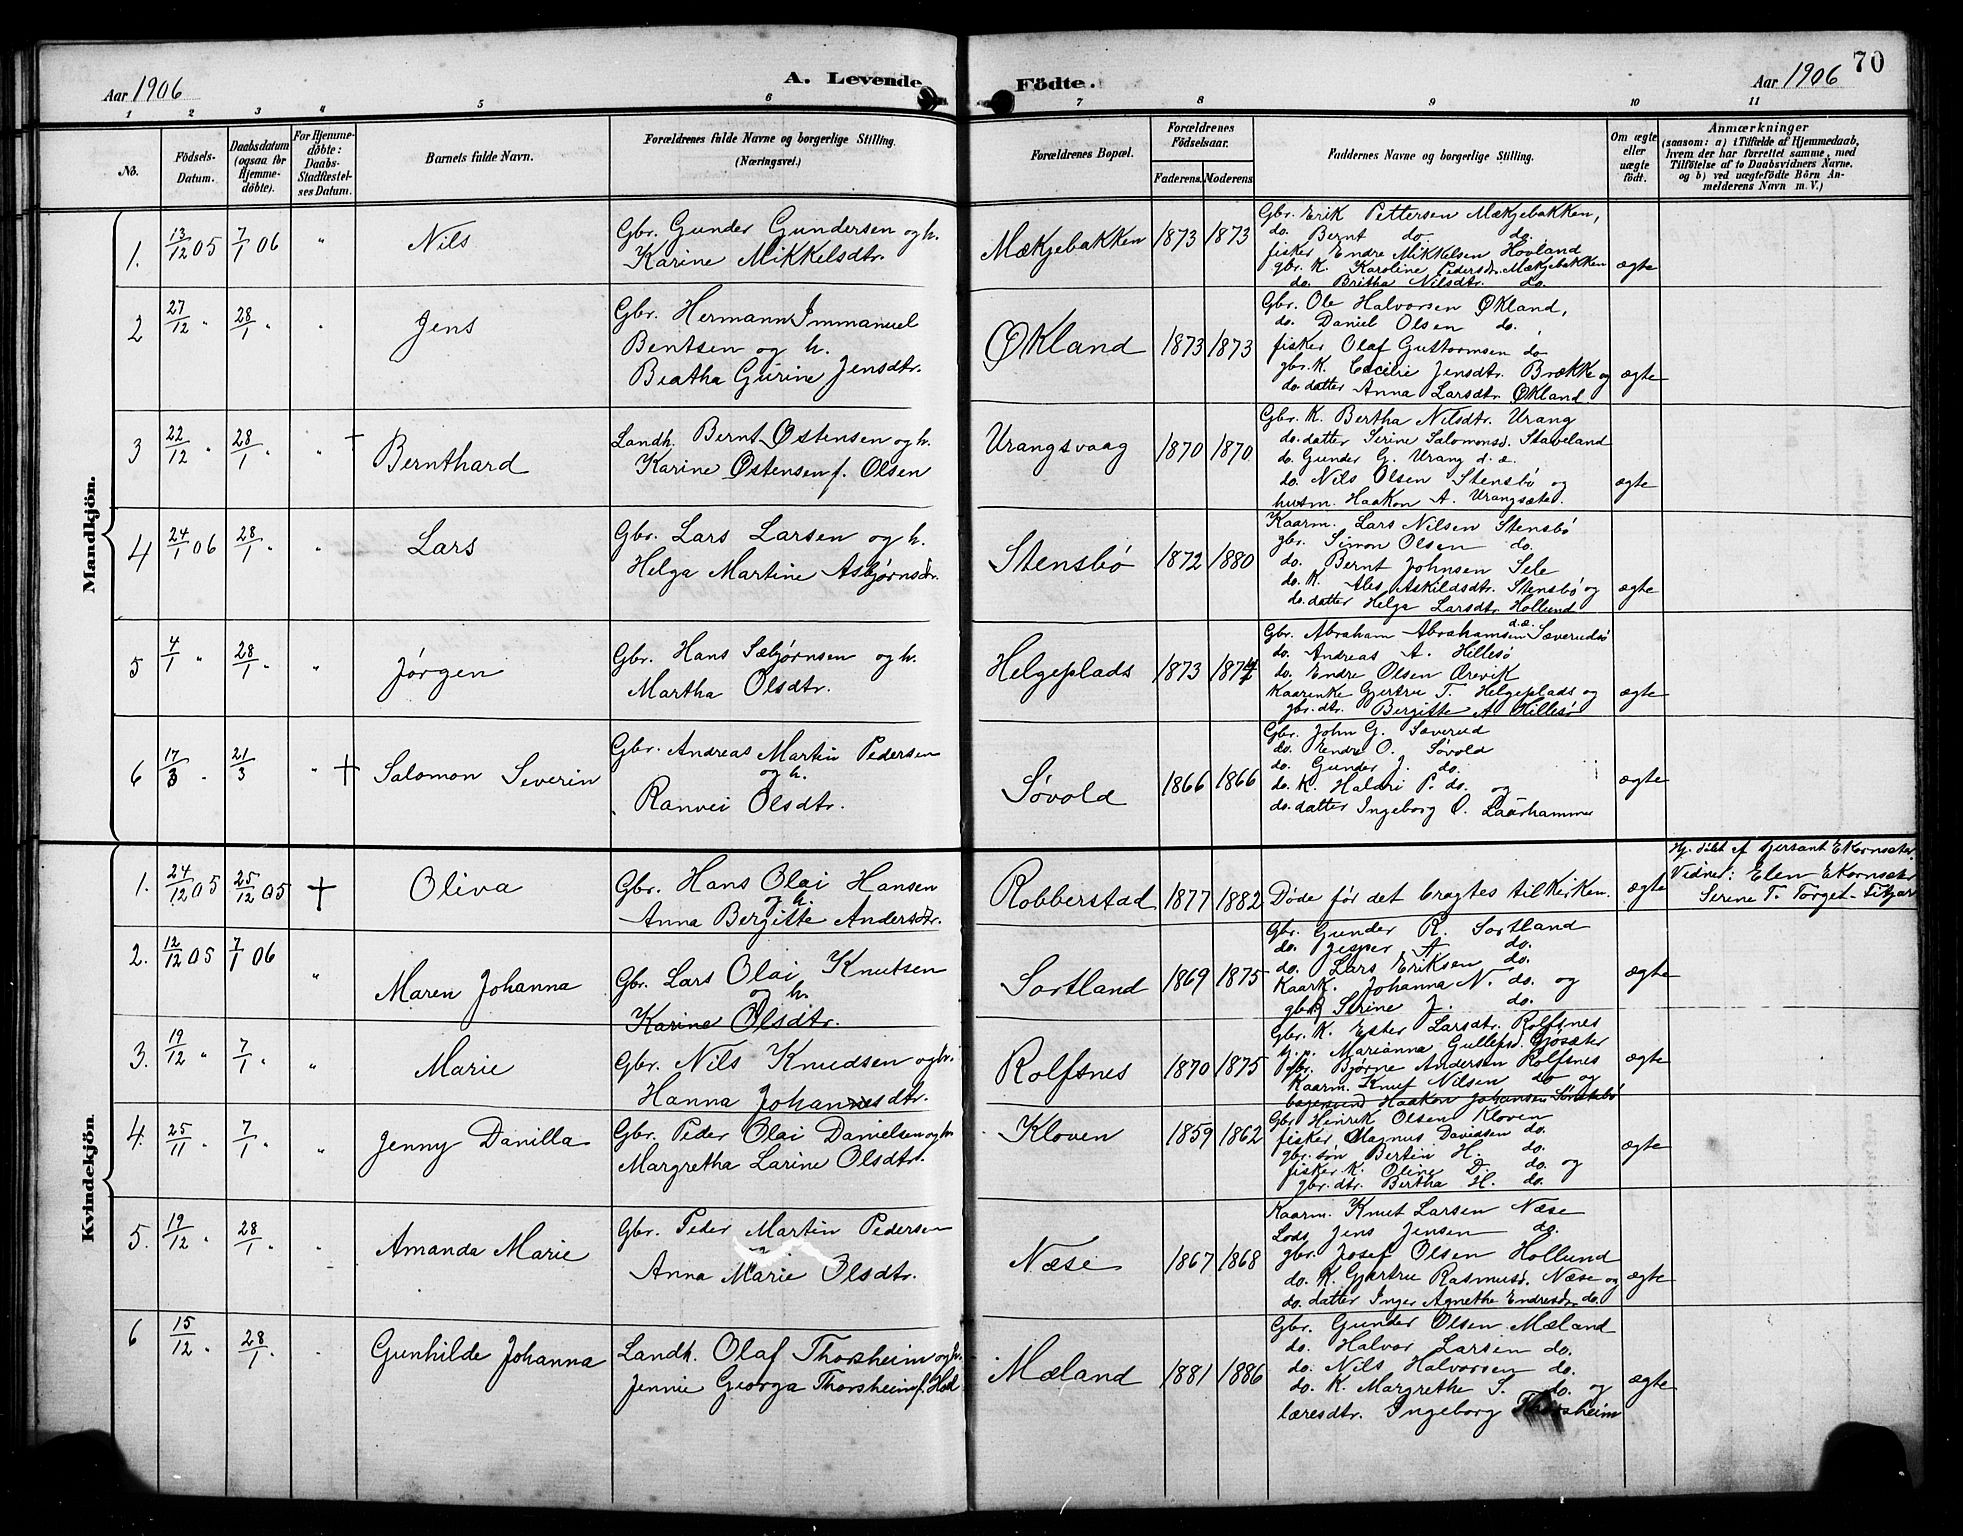 Aar 1906 A. Levende Födte. Aar 1906 70
1 2 3 4 5 6 7 8 9 10 11
No. Födsels-Datum. Daabsdatum (ogsaa for Hjemme-döbte). For Hjemme-döbte: Daabs-Stadfæstel-ses Datum. Barnets fulde Navn. Forældrenes fulde Navne og borgerlige Stilling. (Næringsvei.) Forældrenes Bopæl. Forældrenes Födselsaar. Faderens. Moderens Faddernes Navne og borgerlige Stilling. Om ægte eller uægte födt. Anmærkninger (saasom: a) i Tilfælde af Hjemmedaab, hvem der har forrettet samme, med Tilföielse af to Daabsvidners Navne. og b) ved uægtefödte Börn An-melderens Navn m. V.)
Mandkjön.
1. 13/12 05 7/1 06 " Nils Gbr. Gunder Gundersen og h. Mækjebakken 1873 1873 Gbr. Erik Pettersen Mækjebakken,
Karine Mikkelsdtr. do. Bernt do do.
fisker Endre Mikkelsen Hovland
gbr. K. Karoline Pedersd. Mækjebakken ægte
do. Britha Nilsdtr. do.
2 27/12 " 28/1 " " Jens Gbr. Hermann Immanuel Økland 1873 1873 Gbr. Ole Halvorsen Økland,
Bentsen og h. do. Daniel Olsen do.
Beatha Gurine Jensdtr. fisker Olaf Guttormsen do
gbr. K. Cecilie Jensdtr. Brække og ægte
do. datter Anna Larsdtr. Økland
3 22/12 " 28/1 " " + Bernthard Landh. Bernt Østensen og h. Urangsvaag 1870 1870 Gbr. K. Bertha Nilsdtr. Urang
Karine Østensen f. Olsen do. datter Serine Salomonsd. Staveland
do. Gunder G. Urang d. æ.
do. Nils Olsen Stensbø og ægte
husm. Haakon A. Urangsæter.
4 24/1 06 28/1 " " Lars Gbr. Lars Larsen og h. Stensbø 1872 1880 Kaarm. Lars Nilsen Stensbø
Helga Martine Asbjørnsdtr. gbr. Simon Olsen do.
do. Bernt Johnsen Sele
do. K. Ales Askildsdtr. Stensbø og ægte
do. datter Helga Larsdtr. Hollund
5 4/1 " 28/1 " " Jørgen Gbr. Hans Sæbjørnsen og h. Helgeplads 1873 1874 Gbr. Abraham Abrahamsen d.æ. Sæverudsø
Martha Olsdtr. do. Andreas A. Hillesø
do. Endre Olsen Ørevik
Kaarenke Gjertru T. Helgeplads og ægte
gbr. dtr. Bergitte A Hillesø
6 17/3 " 21/3 " + Salomon Severin Gbr. Andreas Martin Pedersen Søvold 1866 1866 Gbr. John G. Sæverud
og h. do. Endre O. Søvold
Ranvei Olsdtr. do. Gunder J. do.
do. K. Haldri P. do. og ægte
do. datter Ingeborg O. Laurhammer
Kvindekjön.
1. 24/12 05 25/12 05 + Oliva Gbr. Hans Olai Hansen Robberstad 1877 1882 Døde før det bragtes til Kirken. ægte Hj. døbt af Gjersant Ekornsæter.
og h. Vidner: Elen Ekornsæter
Anna Bergitte Andersdtr. Serine T. Torget-Fitjar
2. 12/12 05 7/1 06 " Maren Johanna Gbr. Lars Olai Knutsen Sortland 1869 1875 Gbr. Gunder R. Sortland
og h. do. Jesper A do.
Karine Olsdtr. do. Lars Eriksen do.
Kaark. Johanna N. do. og ægte
gbrk Serine J. do.
3. 19/12 " 7/1 " " Marie Gbr. Nils Knudsen og h. Rolfsnes 1870 1875 Gbr. K. Ester Larsdtr. Rolfsnes
Hanna Johannesdtr. Marianna Gullefsd. Gjøsæter
Gbr. Bjørne Andersen Rolfsnes ægte
Kaarm. Knut Nilsen do og
Haakon Johansen
4. 25/11 " 7/1 " " Jenny Danilla Gbr. Peder Olai Danielsen og h. Kloven 1859 1862 Gbr Henrik Olsen Kloven
Margretha Larine Olsdtr. fisker Magnus Davidsen do.
gbr. søn Bertin H. do. ægte
fisker k. Oline D. do. og
gbr. dtr. Bertha H. do.
5. 19/12 " 28/1 " " Amanda Marie Gbr. Peder Martin Pedersen Næse 1867 1868 Kaarm. Knut Larsen Næse
Anna Marie Olsdtr. Lods Jens Jensen do.
gbr. Josef Olsen Hollund
do. K. Gjertru Rasmusd. Næse og ægte
do. datter Inger Agnethe Endresdtr. do.
6 15/12 " 28/1 " " Gunhilde Johanna Landh. Olaf Thorsheim og h. Mæland 1881 1886 Gbr. Gunder Olsen Mæland
Jennie Georga Thorsheim f. Hod do. Halvor Larsen do.
do. Nils Halvorsen do.
do. K. Margrethe S. do. og ægte
læresdtr. Ingeborg Thorsheim